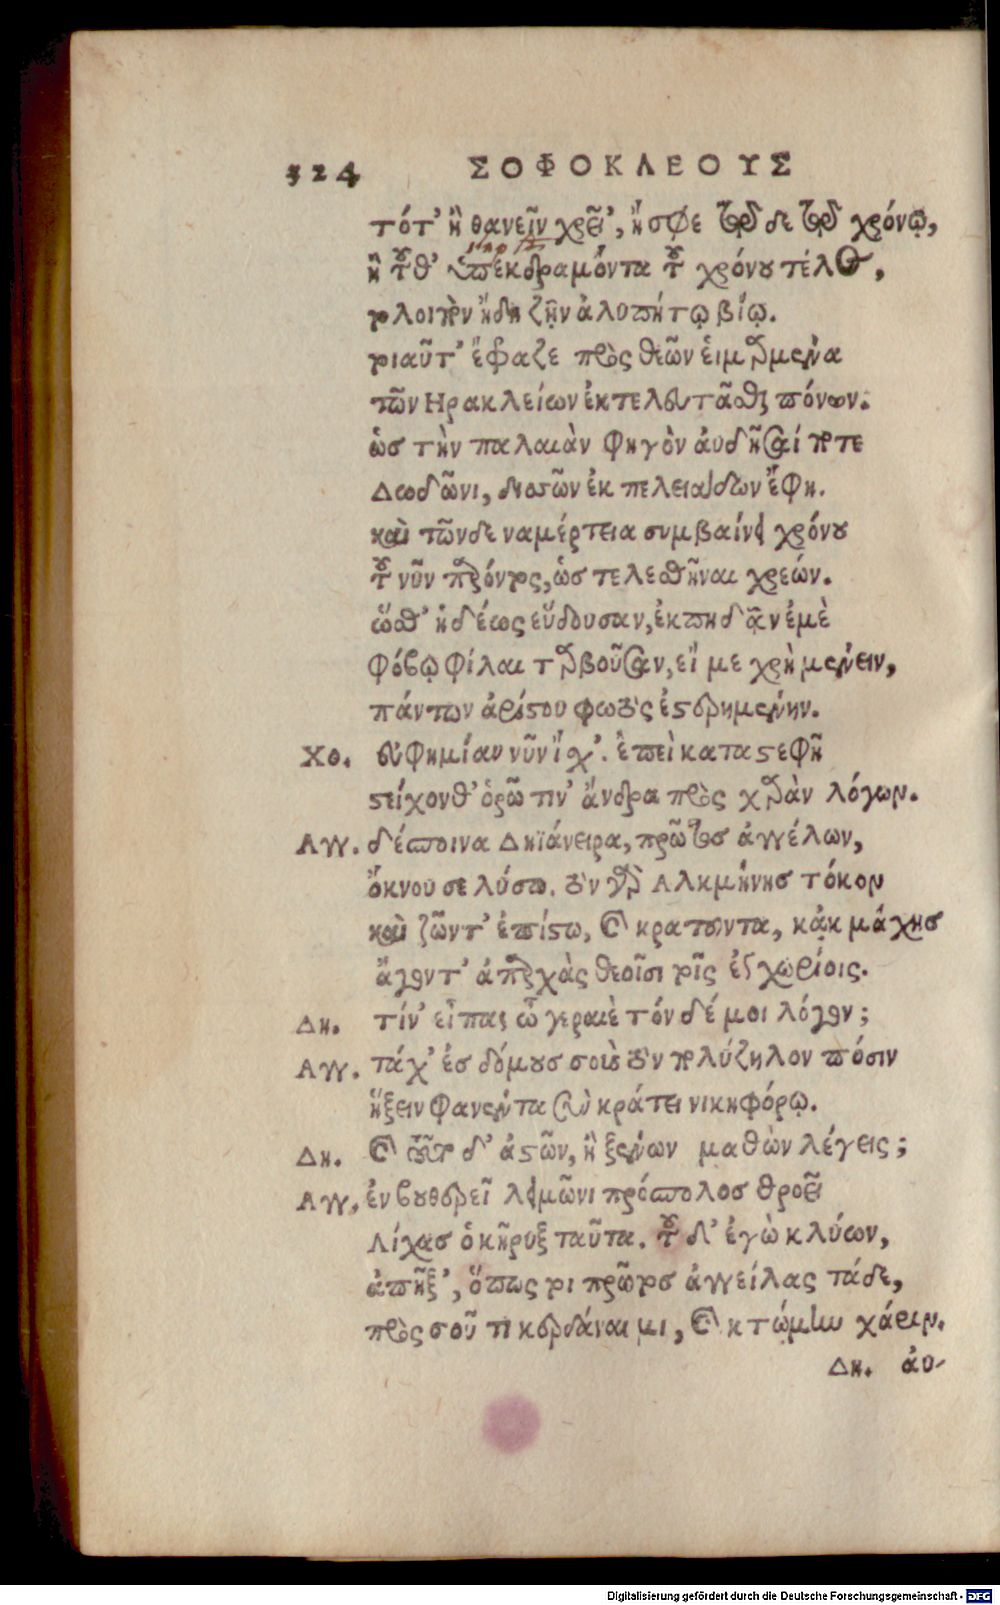 324 ΣΟΦΟΚΛΕΟΥΣ
τότ' ἢ θανεῖν χρεῖ', ἤ σφε τῷδε τῷ χρόνῳ,
ἢ τοῦθ' ὑπεκδραμόντα τοῦ χρόνου τέλος,
τολοιπὸν ἤδη ζῆν ἀλυπήτῳ βίῳ.
τοιαῦτ' ἔφραζε πρὸς θεῶν εἱμαρμένα
τῶν Ηρακλείων ἐκτελευτᾶσθαι πόνων.
ὡς τὴν παλαιὰν φηγὸν ἀυδῆσαί ποτε
Δωδῶνι, δισσῶν ἐκ πελειάδων ἔφη.
καὶ τῶνδε ναμέρτεια συμβαίνει χρόνου
τοῦ νῦν παρόντος, ὡς τελεσθῆναι χρεών.
ὥσθ' ἡδέως εὕδουσαν, ἐκπηδᾷν ἐμὲ
φόβῳ φίλαι ταρβοῦσαν, εἴ με χρὴ μένειν,
πάντων ἀρίστου φωτὸς ἐστερημένην.
Χο. εὐφημίαν νῦν ἴσχ'. ἐπεὶ καταστεφῆ
στείχονθ' ὁρῶ τιν' ἄνδρα πρὸς χαρὰν λόγων.
Αγγ. δέσποινα Δηϊάνειρα, πρῶτος ἀγγέλων,
ὄκνου σε λύσω. τὸν γὰρ Αλκμήνης τόκον
καὶ ζῶντ' ἐπίστω, καὶ κρατοῦντα, κᾀκ μάχης
ἄγοντ' ἀπαρχὰς θεοῖσι τοῖς ἐγχωρίοις.
Δη. τίν' εἶπας ὦ γεραιὲ τόνδέ μοι λόγον;
Αγγ. τάχ' ἐς δόμους σοὺς τὸν πολύζηλον πόσιν
ἥξειν φανέντα σὺν κράτει νικηφόρῳ.
Δη. καὶ τοῦ τόδ' ἀστῶν, ἢ ξένων μαθὼν λέγεις;
Αγγ. ἐν βουθερεῖ λειμῶνι πρόσπολος θροεῖ
Λίχας ὁ κῆρυξ ταῦτα. τοῦ δ' ἐγὼ κλύων,
ἀπῆξ', ὅπως τοι πρῶτος ἀγγείλας τάδε,
πρὸς σοῦ τι κερδάναιμι, καὶ κτώμην χάριν.
Δη. ἀυ-
Digitalisierung gefördert durch die Deutsche Forschungsgemeinschaft - DFG